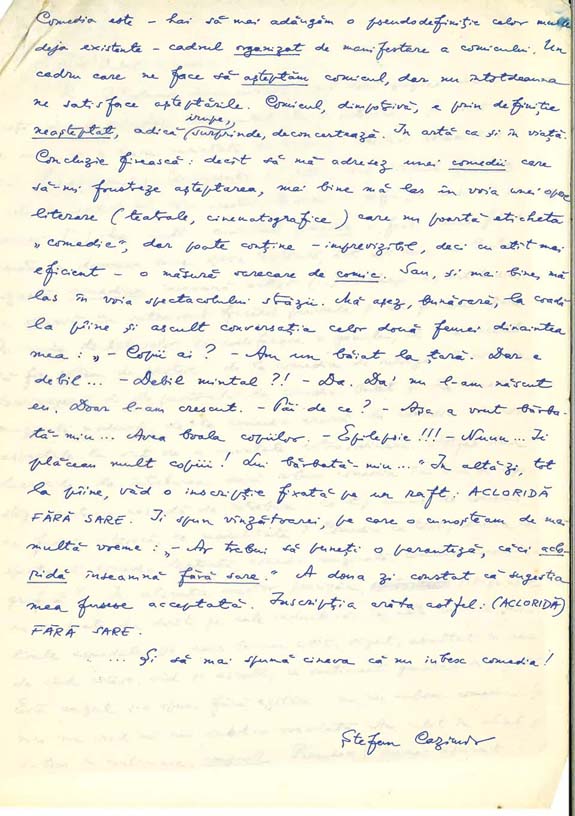 Comedia este – hai să mai adăugăm o pseudodefiniție celor multe
deja existente – cadrul organizat de manifestare a comicului. Un
cadru care ne face să așteptăm comicul, dar nu întotdeauna
ne satisface așteptările. Comicul, dimpotrivă, e prin definiție
neașteptat, adică irupe, surprinde, deconcertează. În artă ca și în viață.
Concluzie firească: decît să mă adresez unei comedii care
să-mi frusteze așteptarea, mai bine mă las în voia unei opere
literare (teatrale, cinematografice) care nu poartă eticheta
„comedie”, dar poate conține – imprevizibil, deci cu atît mai
eficient – o măsură oarecare de comic. Sau, și mai bine, mă
las în voia spectacolului străzii. Mă așez, bunăoară, la coadă
la pîine și ascult conversația celor două femei dinaintea
mea: „– Copii ai? – Am un băiat la țară. Dar e
debil... – Debil mintal?! – Da. Da' nu l-am născut
eu. Doar l-am crescut. – Păi de ce? – Așa a vrut bărba-
tă-miu... Avea boala copiilor. – Epilepsie!!! – Nuuu... Îi
plăceau mult copiii! Lui bărbată-miu...” În altă zi, tot
la pîine, văd o inscripție fixată pe un raft: ACLORIDĂ
FĂRĂ SARE. Îi spun vînzătoarei, pe care o cunoșteam de mai
multă vreme: „– Ar trebui să puneți o paranteză, căci aclo-
ridă înseamnă fără sare.” A doua zi constat că sugestia
mea fusese acceptată. Inscripția arăta astfel: (ACLORIDĂ)
FĂRĂ SARE.
... Și să mai spună cineva că nu iubesc comedia!
Ștefan Cazimir